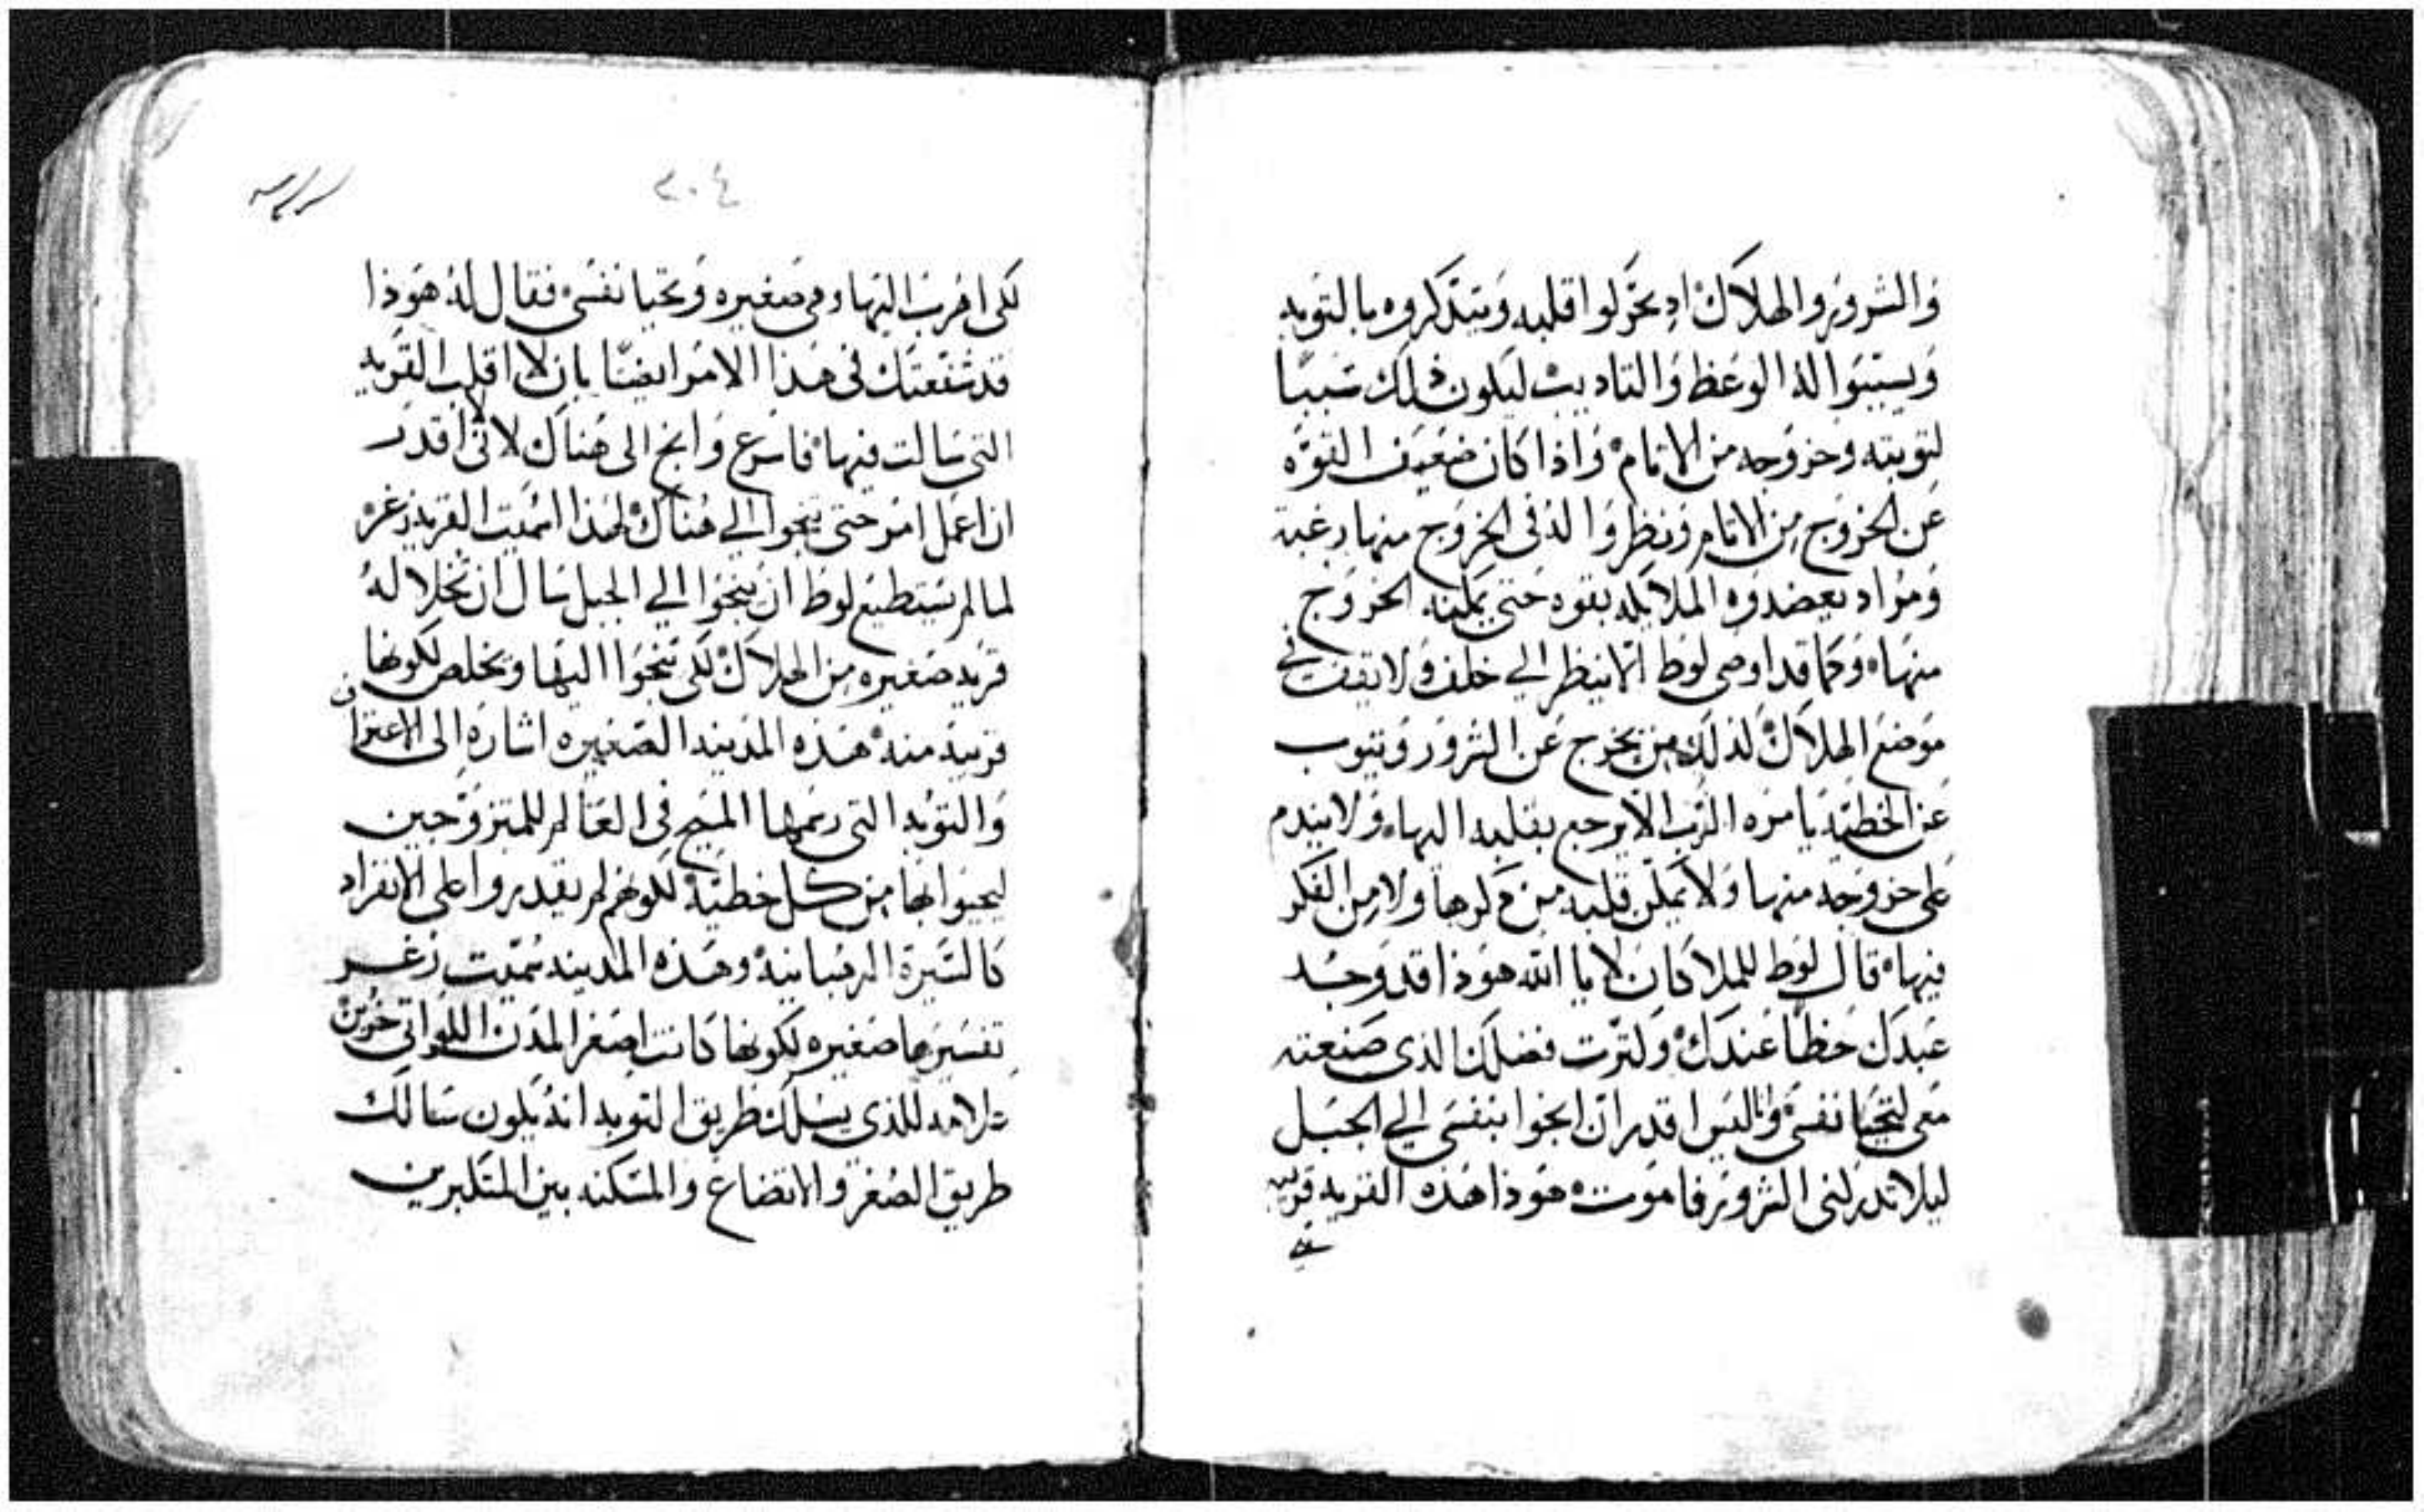 والشرور والهلاك اد يحركوا قلبه ويتذكروه بالتوبه
ويسببوا له الوعظ والتاديب ليكون ذلك سببا
لتوبته وخروجه من الاثام واذا كان ضعيف القوه
عن الخروج من الاثام ونظروا له في الخروج منها رغبة
ومراد يعضدوه الملايكه بقوه حتي يمكنه الخروج
منها وكما قد اوصي لوط الا ينظر الي خلف ولا يقف في
موضع الهلاك لذلك من يخرج عن الشرور ويتوب
عن الخطيه يامره الرب الا يرجع بقلبه اليها ولا يندم
على خروجه منها ولا يمكن قلبه من ذكرها ولا من الفكر
فيها قال لوط للملاكان لا يا الله هوذا قد وجد
عبدك حظا عندك ولترت فضلك الذى صنعته
معى لتحيا نفسي وانا ليس اقدر ان انجوا بنفسي الي الجبل
ليلا تدركنى الشرور فاموت هوذا هذه القريه قريبه
٣٠٤
لكى اهرب اليها وهى صغيره وتحيا نفسي فقال له هوذا
قد شفعتك فى هذا الامر ايضا بان لا اقلب القريه
التى سالت فيها فاسرع وانج الى هناك لانى لا اقدر
ان اعمل امر حتى تنجوا الي هناك لهذا اسميت القريه زغر
لما لم يستطيع لوط ان ينجوا الي الجبل سال ان تخلا له
قريه صغيره من الهلاك لكى ينجوا اليها ويخلص لكونها
قريبة منه هذه المدينه الصغيره اشارة الى الاعتراف
والتوبه التى رسمها المسيح في العالم للمتزوجين
لينجوا بها من كل خطية لكونهم لم يقدروا على الانفراد
كالسيرة الرهبانية وهذه المدينه سميت زغر
تفسيرها صغيره لكونها كانت اصغر المدن اللواتى
للذى يسلك طريق التوبه انه يكون سالك
طريق الصغر والاتضاع والمسكنه بين المتكبرين